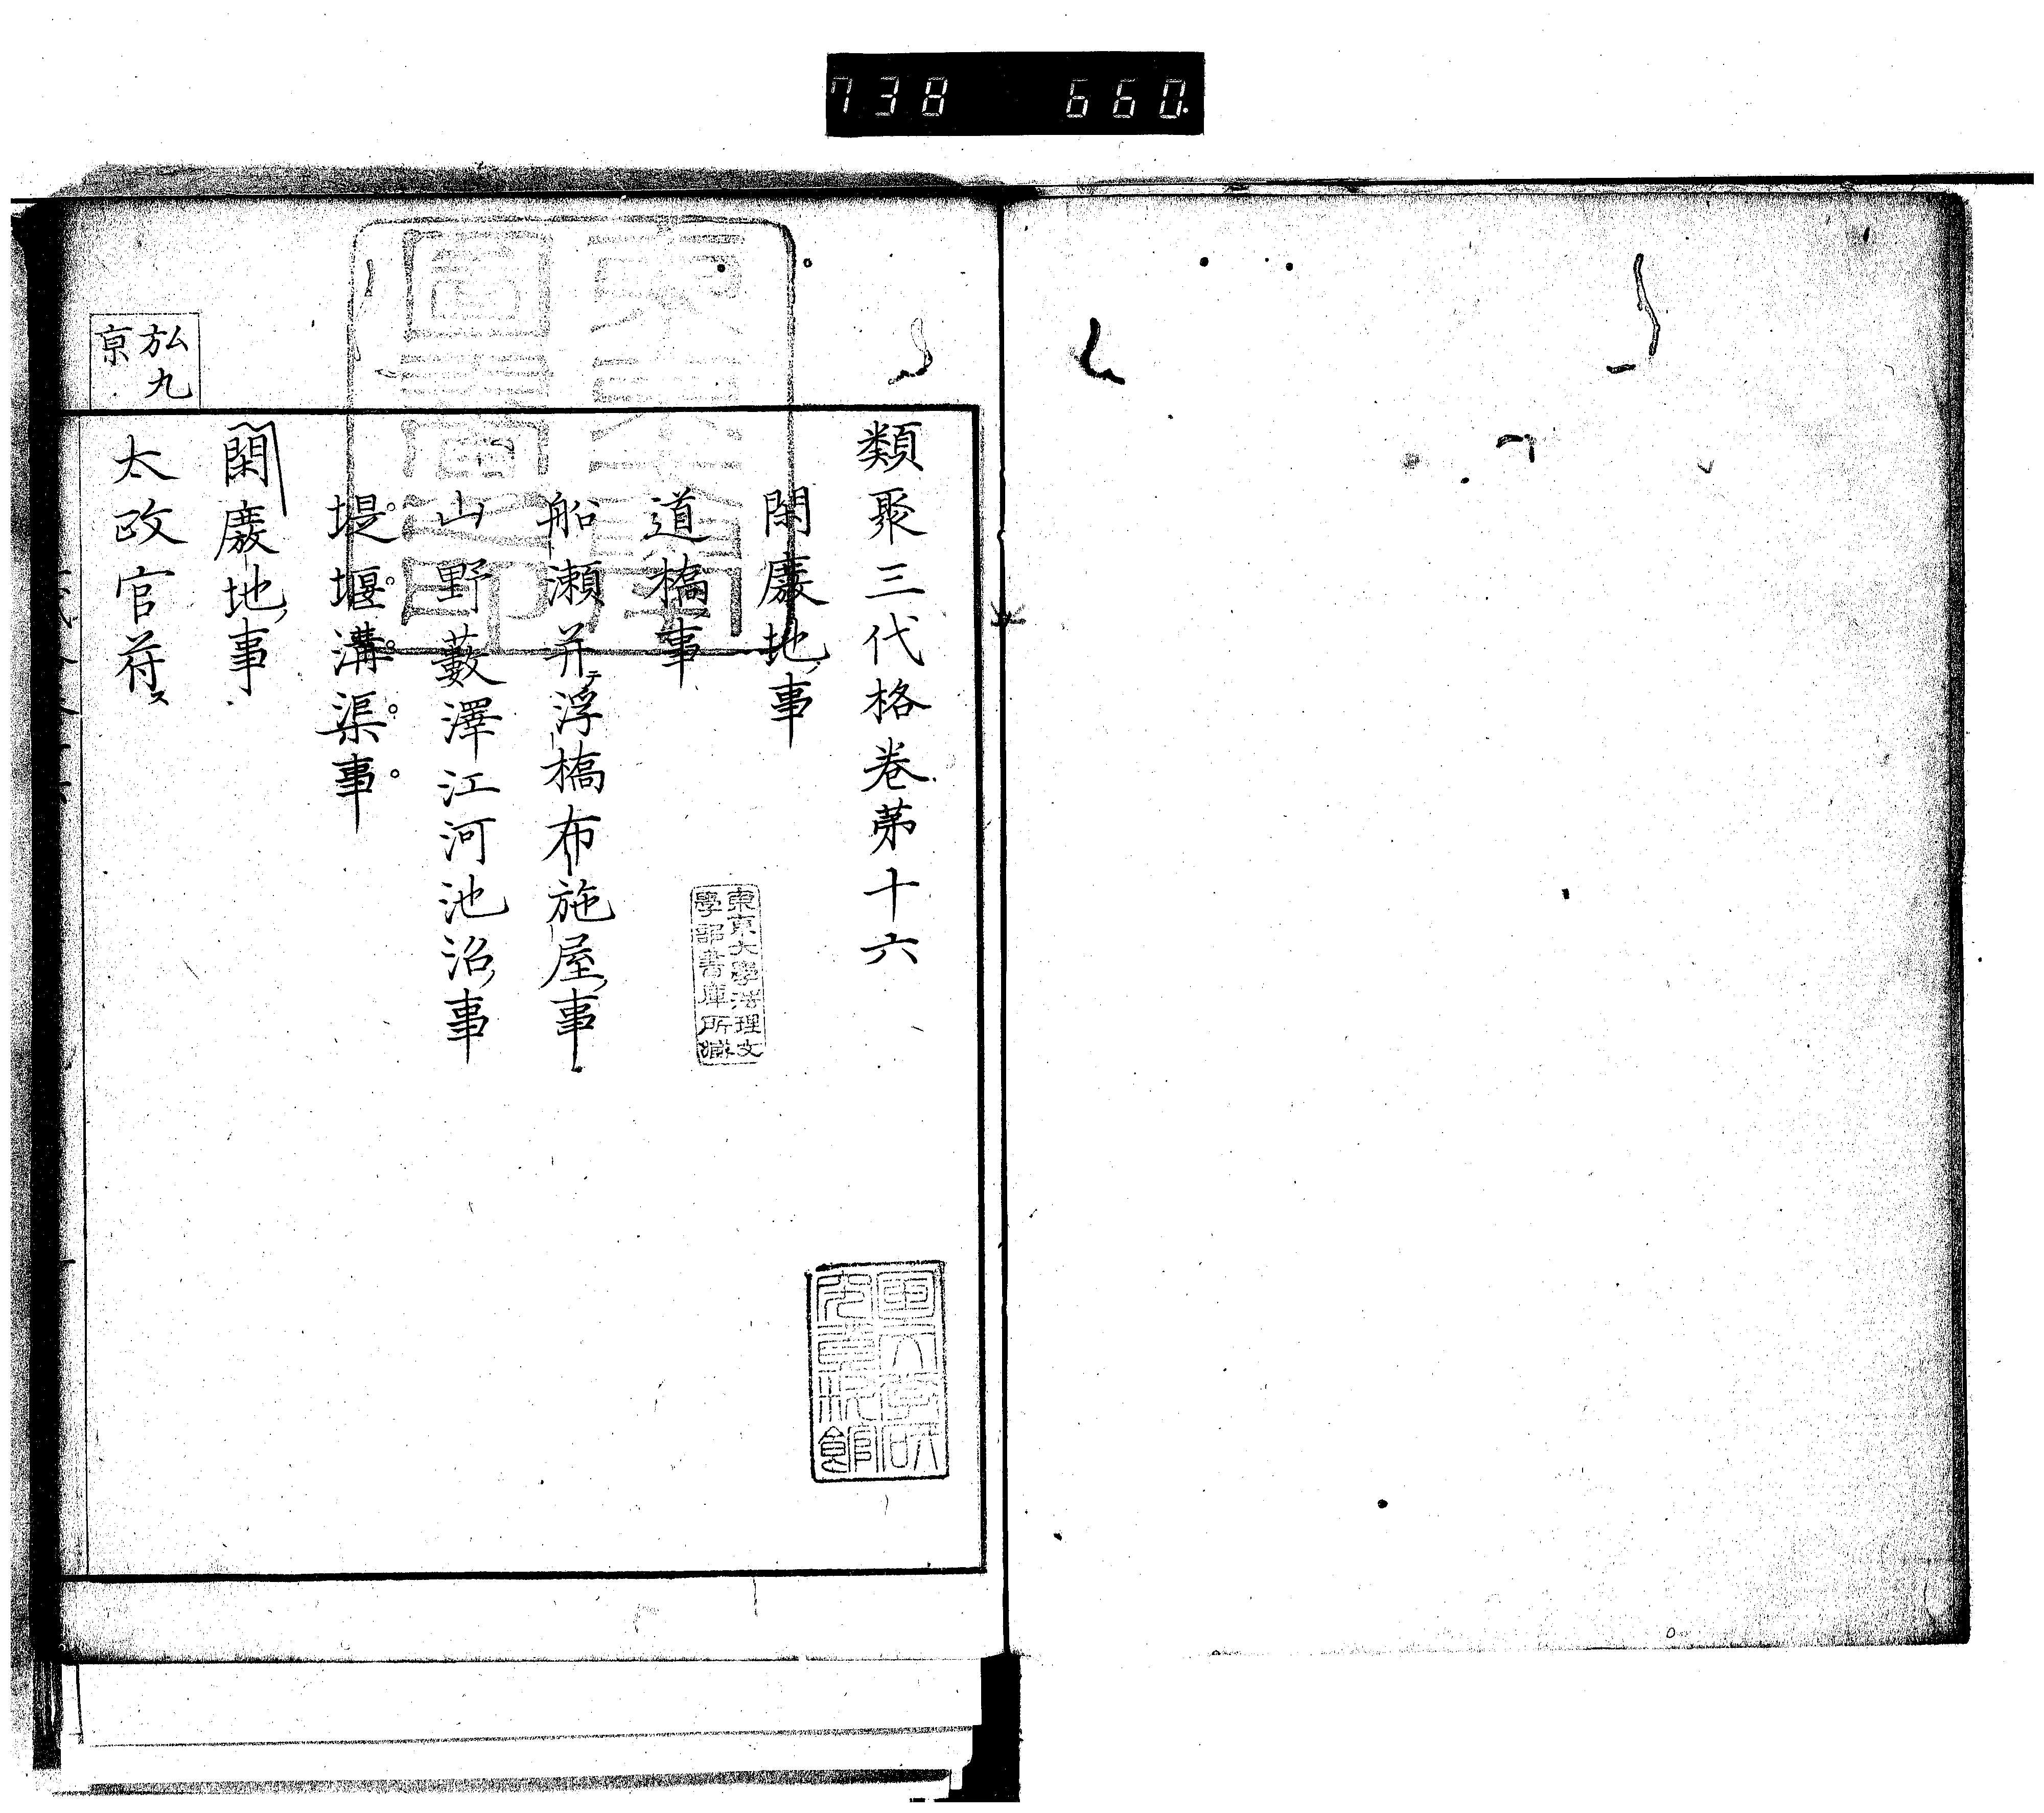 738 660
類聚三代格卷第十六
閑廢地事
道橋事
船瀬并浮橋布施屋事
山野藪澤江河池沼事
堤堰溝渠事
閑廢地事
太政官符
弘九
京
東京大學法理文
學部書庫所藏